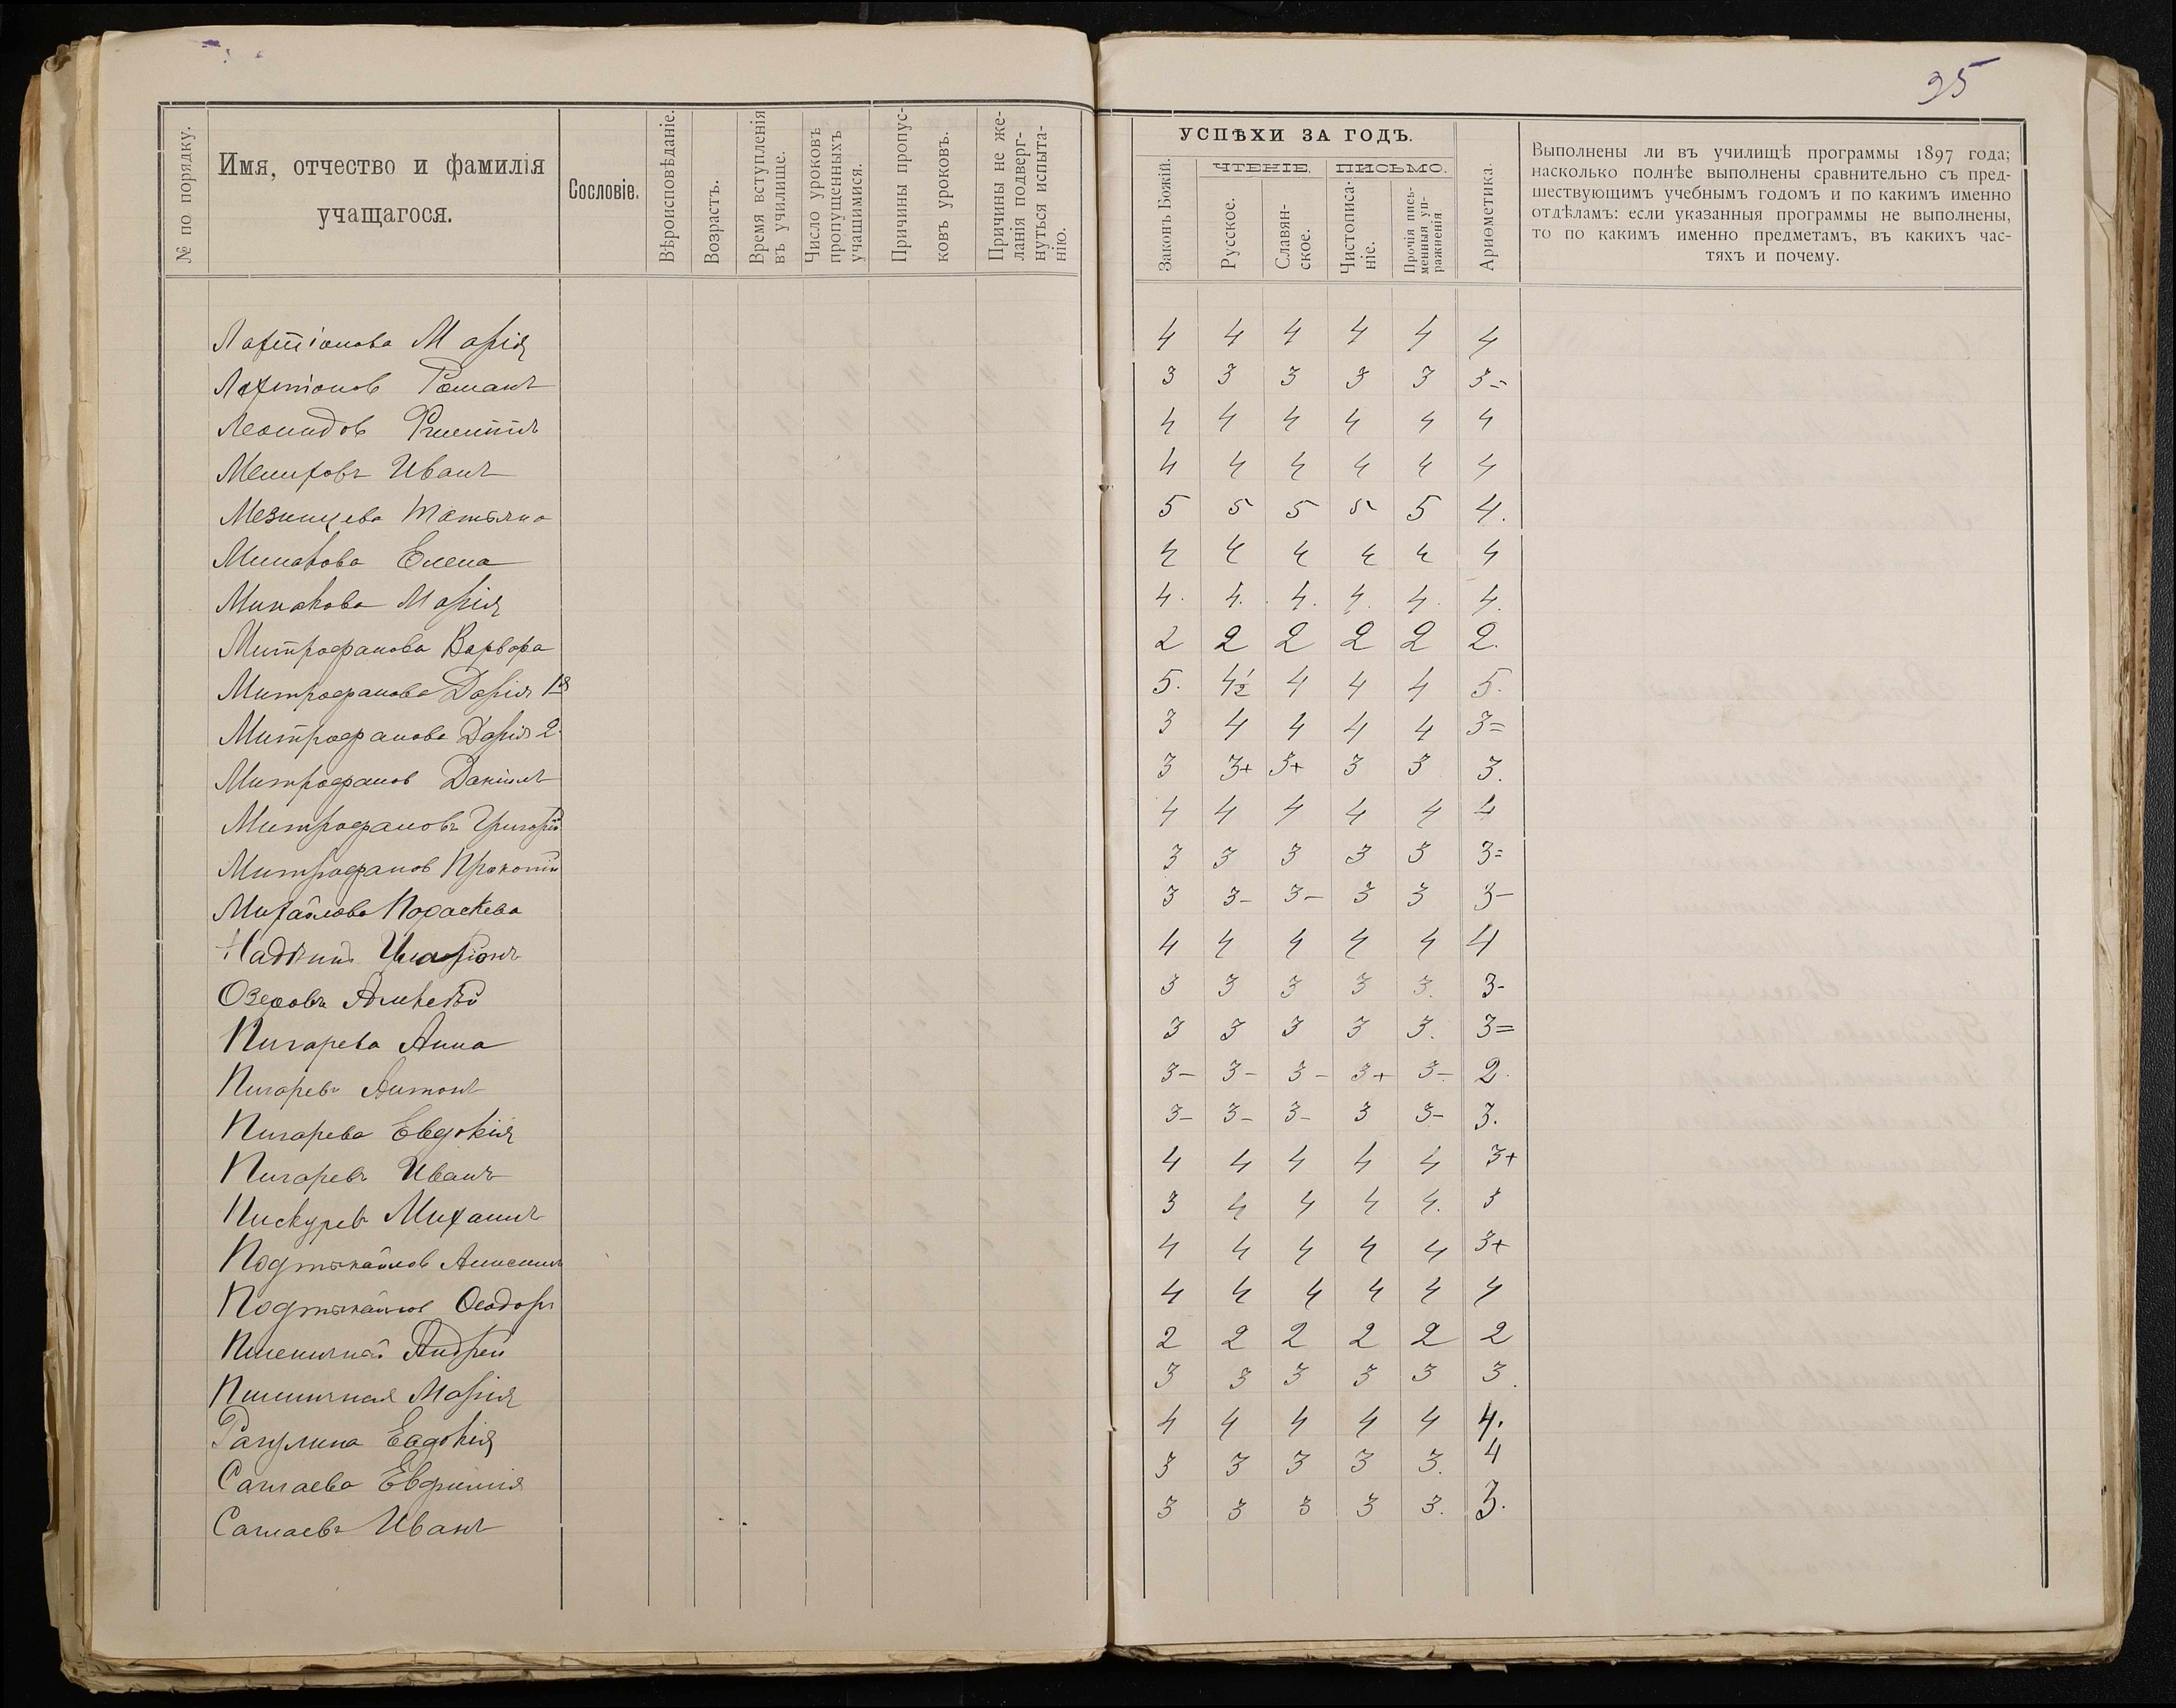 35
№ по порядку.
Имя, отчество и фамилія
учащагося.
Сословіе.
Вѣроисповѣданіе.
Возрастъ.
Время вступленія
въ училище.
Число уроковъ
пропущенныхъ
учащимися.
Причины пропус-
ковъ уроковъ.
Причины не же-
ланія подверг-
нуться испыта-
нію.
УСПѢХИ ЗА ГОДЪ.
Законъ Божій.
ЧТЕНІЕ.
ПИСЬМО.
Русское.
Славян-
ское.
Чистописа-
ніе.
Прочія пись-
менныя уп-
ражненія
Ариѳметика.
Выполнены ли въ училищѣ программы 1897 года;
насколько полнѣе выполнены сравнительно съ пред-
шествующимъ учебнымъ годомъ и по какимъ именно
отдѣламъ: если указанныя программы не выполнены,
то по какимъ именно предметамъ, въ какихъ час-
тяхъ и почему.
Марія 4 4 4 4 4 4
Романъ 3 3 3 3 3 3=
Леонидов 4 4 4 4 4 4
Иванъ 4 4 4 4 4 4
Мезинцева Татьяна 5 5 5 5 5 4.
Минакова Елена 4 4 4 4 4 4
Минакова Марія 4. 4. 4. 4. 4. 4.
Митрофанова Варвара 2 2 2 2 2 2.
Митрофанова Дарія 1я 5. 4½ 4 4 4 5.
Митрофанова Дарія 2. 3 4 4 4 4 3=
Митрофанов Даніилъ 3 3+ 3+ 3 3 3.
Митрофановъ Григорій 4 4 4 4 4 4
Митрофанов Прокопій 3 3 3 3 3 3=
Михайлова Параскева 3 3- 3- 3 3 3-
Иларіонъ 4 4 4 4 4 4
Алексѣй 3 3 3 3 3. 3-
Пигарева Анна 3 3 3 3 3. 3=
Пигаревъ Антонъ 3- 3- 3- 3+ 3- 2.
Пигарева Евдокія 3- 3- 3- 3 3- 3.
Пигаревъ Иванъ 4 4 4 4 4 3+
Михаилъ 3 4 4 4 4. 3
Подтыкайлов 4 4 4 4 4 3+
Подтыкайлов Ѳеодоръ 4 4 4 4 4 4
Пшеничный Андрей 2 2 2 2 2 2
Пшеничная Марія 3 3 3 3 3 3.
Рагулина Евдокія 4 4 4 4 4 4.
Евфимія 3 3 3 3 3. 4
Иванъ 3 3 3 3 3. 3.